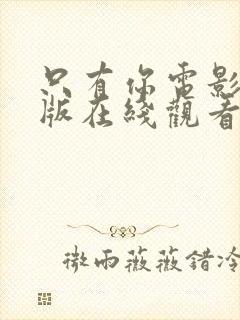 只有你電影
版在綫觀看
微雨薇薇錯冷